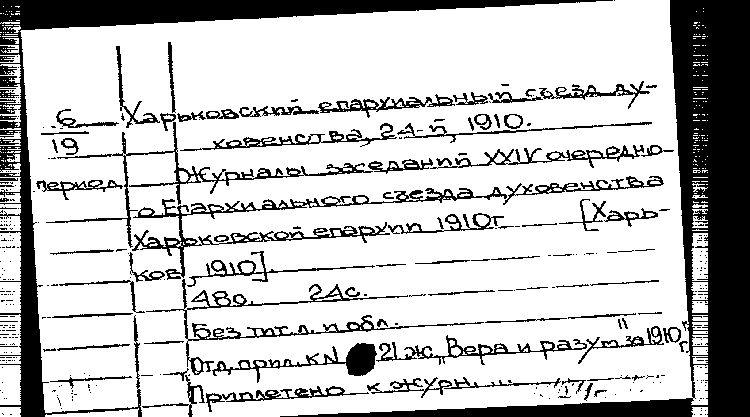 6 Харьковский епархиальный съезд ду-
19 ховенства, 24-й, 1910.
Журналы заседаний XXIV очередно-
период. о Епархиального съезда духовенства
Харьковской епархии 1910г [Харь-
ков, 1910].
48о. 24с.
Без тит.л. и обл.
Отд. прил. к N 21 ж. "Вера и разум" за 1910г.
Приплетено к журн. ...